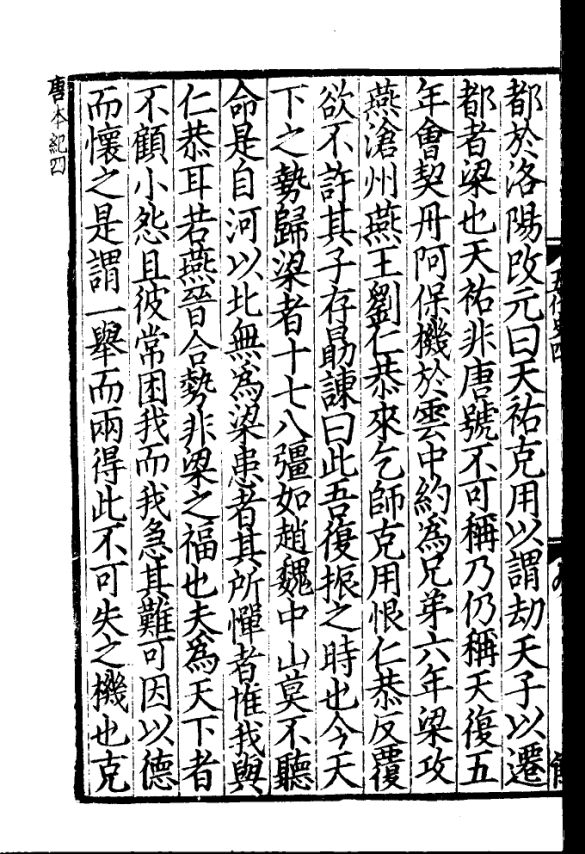 都於洛陽改元曰天祐克用以謂劫天子以遷
都者梁也天祐非唐號不可稱乃仍稱天復五
年會契丹阿保機於雲中約為兄弟六年梁攻
燕滄州燕王劉仁恭來乞師克用恨仁恭反覆
欲不許其子存勗諫曰此吾復振之時也今天
下之勢歸梁者十七八彊如趙魏中山莫不聽
命是自河以北無為梁患者其所憚者惟我與
仁恭耳若燕晉合勢非梁之福也夫為天下者
不顧小怨且彼常困我而我急其難可因以德
而懷之是謂一舉而兩得此不可失之機也克
唐本紀四